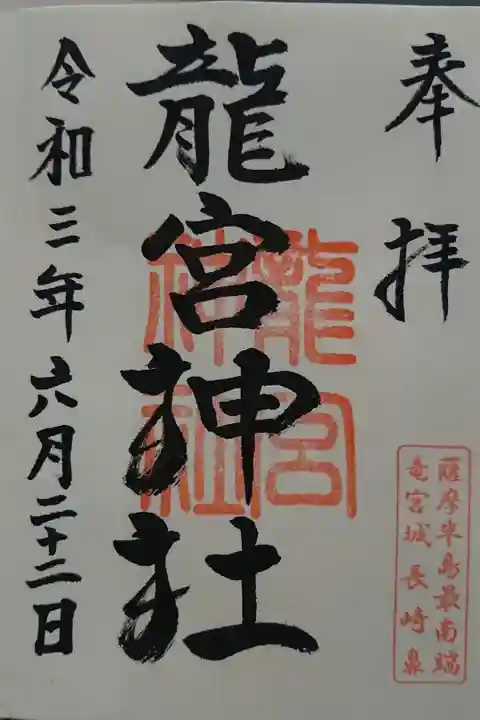 奉拝
薩摩半島最南端
竜宮城長崎鼻
龍宮神社
龍宮
神社
令和三年六月二十二日